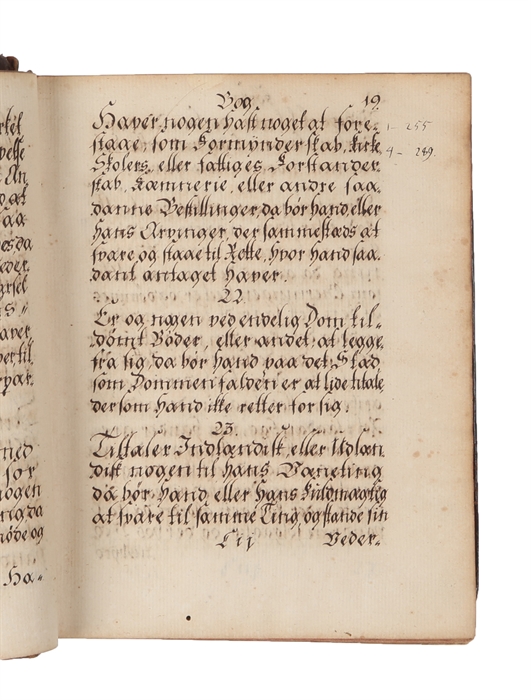 Bog. 19.
Haver nogen paa sig noget at fore-
staae, som Formynderskab, Kirke
Skolers, eller fattiges Forstander
skab, Kæmnerie, eller andre saa-
danne Bestillinger, da bør hand eller
Hans Arvinger, der sammestæds at
svare, og staae til Rette, hvor hand saa-
dant antaget haver.
22.
Er og nogen ved endelig Dom til-
dømt Bøder, eller andet at legge
fra sig, da bør hand paa det Stæd
som Dommen falden er at lide tiltale
dersom hand ikke retter for sig.
23.
Tiltaler Indlændisk, eller Udlæn
disk nogen til hans Værneting
da bør hand, eller Hans Fuldmægtig
at svare til samme Ting, og stande sin
C ij Veder-
1 - 255
4 - 289